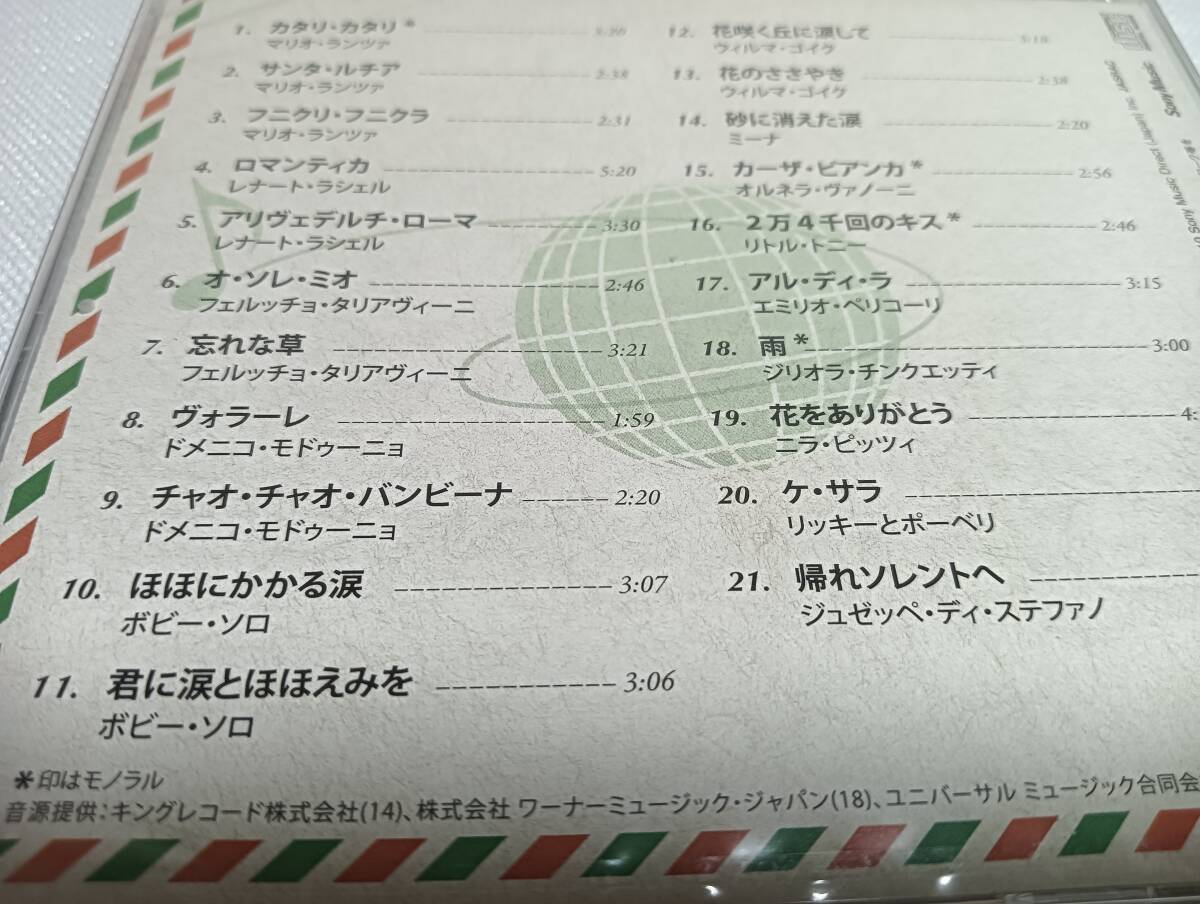 1. カタリ・カタリ*
マリオ・ランツァ
2. サンタ・ルチア 2:38
マリオ・ランツァ
3. フニクリ・フニクラ 2:31
マリオ・ランツァ
4. ロマンティカ 5:20
レナート・ラシェル
5. アリヴェデルチ・ローマ 3:30
レナート・ラシェル
6. オ・ソレ・ミオ 2:46
フェルッチョ・タリアヴィーニ
7. 忘れな草 3:21
フェルッチョ・タリアヴィーニ
8. ヴォラーレ 1:59
ドメニコ・モドゥーニョ
9. チャオ・チャオ・バンビーナ 2:20
ドメニコ・モドゥーニョ
10. ほほにかかる涙 3:07
ボビー・ソロ
11. 君に涙とほほえみを 3:06
ボビー・ソロ
12. 花咲く丘に涙して
ウィルマ・ゴイク
13. 花のささやき 2:38
ウィルマ・ゴイク
14. 砂に消えた涙 2:20
ミーナ
15. カーザ・ビアンカ* 2:56
オルネラ・ヴァノーニ
16. 2万4千回のキス* 2:46
リトル・トニー
17. アル・ディ・ラ 3:15
エミリオ・ペリコーリ
18. 雨* 3:00
ジリオラ・チンクエッティ
19. 花をありがとう 4:
ニラ・ピッツィ
20. ケ・サラ
リッキーとポーベリ
21. 帰れソレントへ
ジュゼッペ・ディ・ステファノ
*印はモノラル
音源提供:キングレコード株式会社(14)、株式会社 ワーナーミュージック・ジャパン(18)、ユニバーサル ミュージック合同会
Sony Music Direct (Japan) Inc. JASRAC
Sony Music